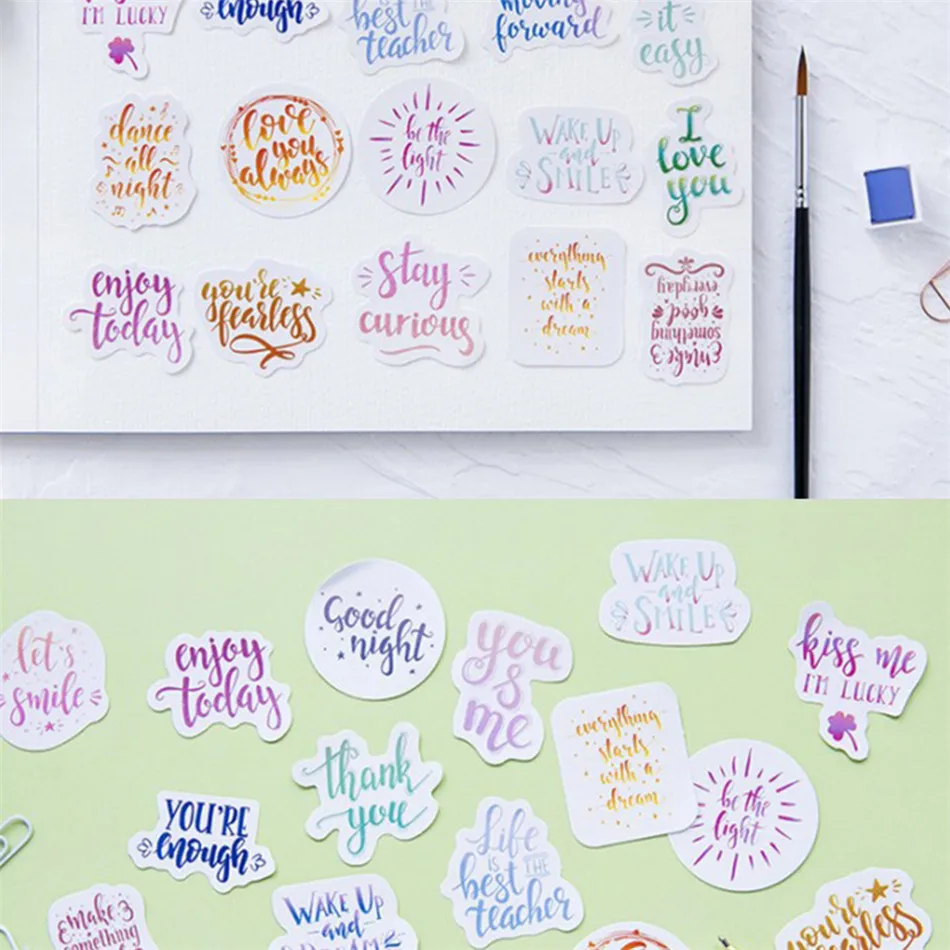 I'M LUCKY
enough
IS
best THE
teacher
moving
forward
it
easy
dance
all
night
love
you
always
be the
light
WAKE UP
and
SMILE
I
love
you
enjoy
today
you're
fearless
stay
curious
everything
starts
with a
dream
make 3
something
good
everyday
let's
smile
enjoy
today
Good
night
you
&
me
WAKE UP
and
SMILE
kiss me
I'M LUCKY
thank
you
everything
starts
with a
dream
be the
light
YOU'RE
enough
Life
IS THE
best
teacher
make 3
something
WAKE UP
and
DREAM
you're
fearless